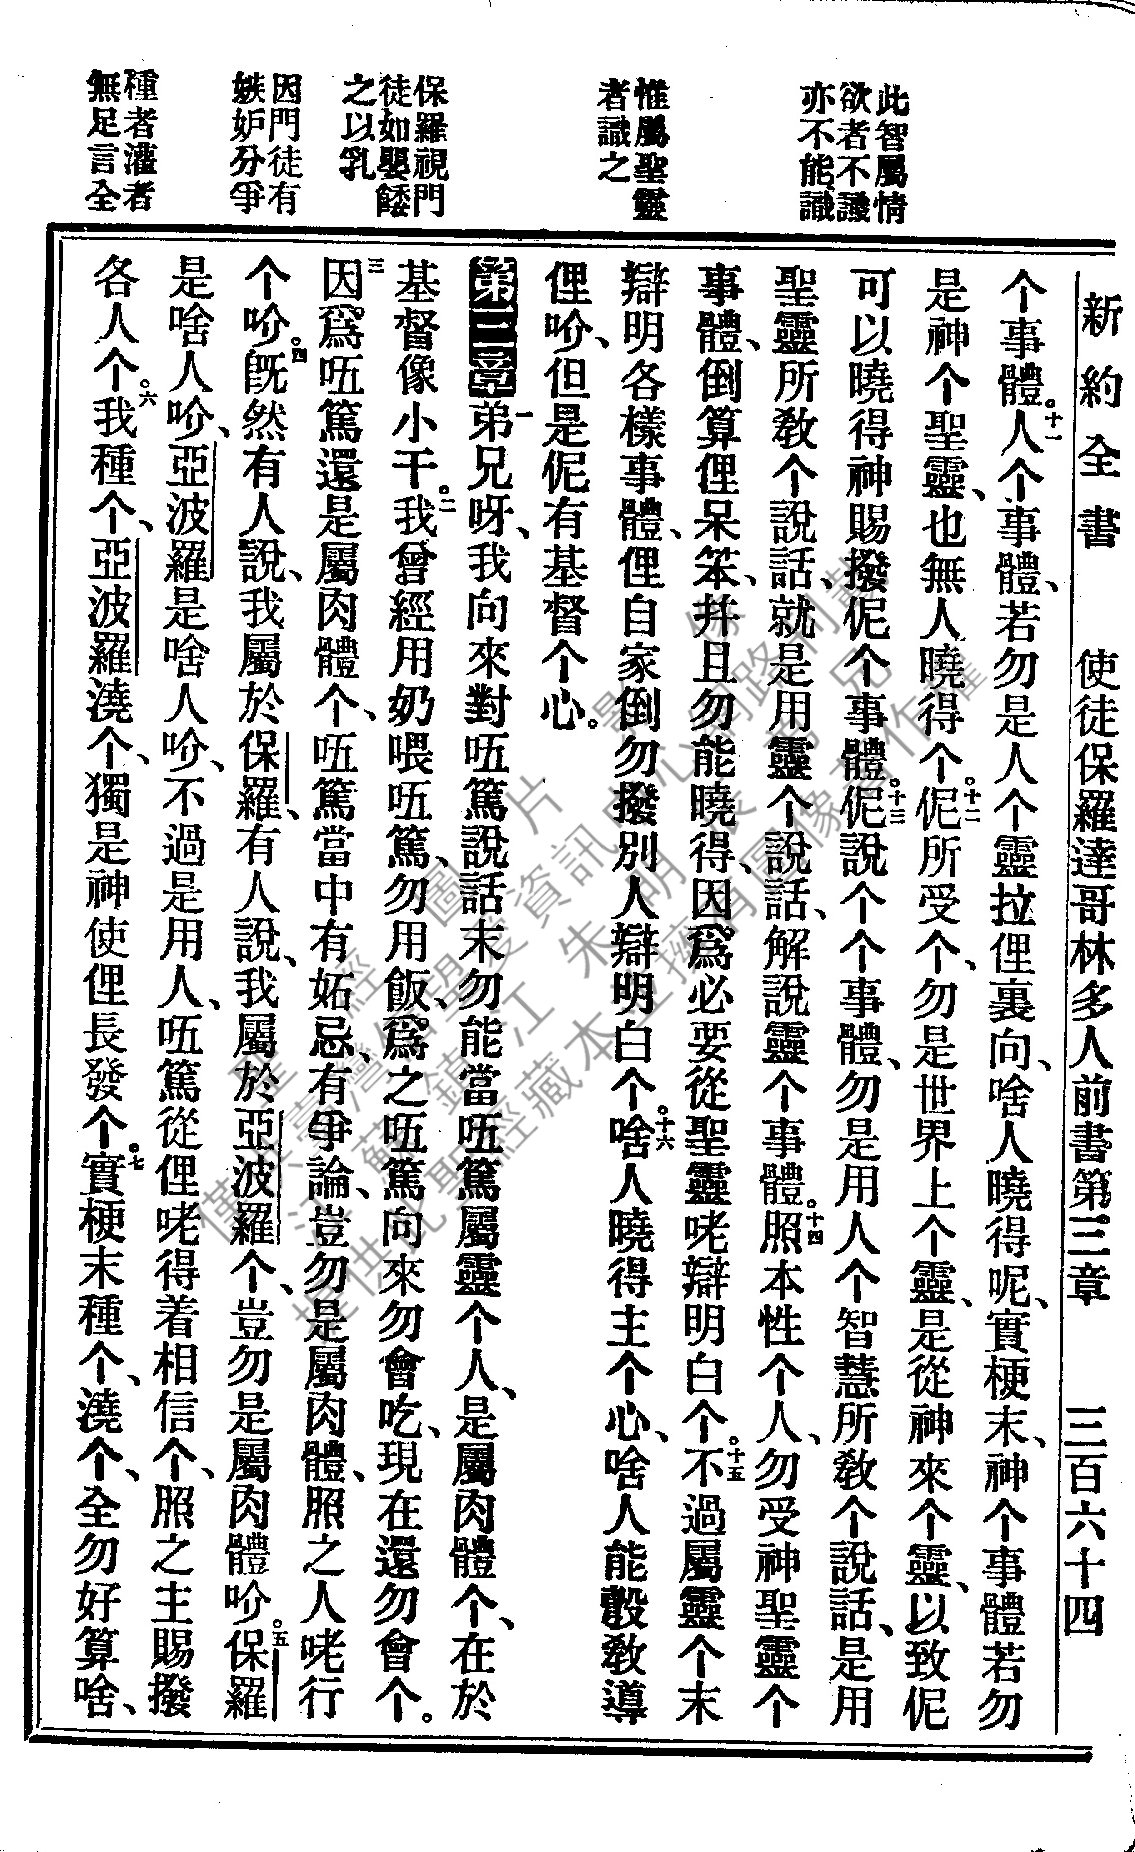 新約全書 使徒保羅達哥林多人前書第三章 三百六十四
此智屬情
欲者不識
亦不能識
惟屬聖靈
者識之
保羅視門
徒如嬰餧
之以乳
因門徒有
嫉妒分爭
種者灌者
無足言全
个事體。十一人个事體、若勿是人个靈拉俚裏向、啥人曉得呢、實梗末、神个事體若勿
是神个聖靈、也無人曉得个。十二伲所受个、勿是世界上个靈、是從神來个靈、以致伲
可以曉得神賜撥伲个事體。十三伲說个个事體、勿是用人个智慧所敎个說話、是用
聖靈所敎个說話、就是用靈个說話、解說靈个事體。十四照本性个人、勿受神聖靈个
事體、倒算俚呆笨、幷且勿能曉得、因爲必要從聖靈咾辯明白个。十五不過屬靈个末
辯明各樣事體、俚自家倒勿撥別人辯明白个。十六啥人曉得主个心、啥人能彀敎導
俚吤、但是伲有基督个心。
第三章 一弟兄呀、我向來對㕶篤說話末勿能當㕶篤屬靈个人、是屬肉體个、在於
基督像小干。二我曾經用奶喂㕶篤、勿用飯、爲之㕶篤向來勿會吃、現在還勿會个。
三因爲㕶篤還是屬肉體个、㕶篤當中有妬忌、有爭論、豈勿是屬肉體、照之人咾行
个吤。四旣然有人說、我屬於保羅、有人說、我屬於亞波羅个、豈勿是屬肉體吤。五保羅
是啥人吤、亞波羅是啥人吤、不過是用人、㕶篤從俚咾得着相信个、照之主賜撥
各人个。六我種个、亞波羅澆个、獨是神使俚長發个。七實梗末種个、澆个、全勿好算啥、